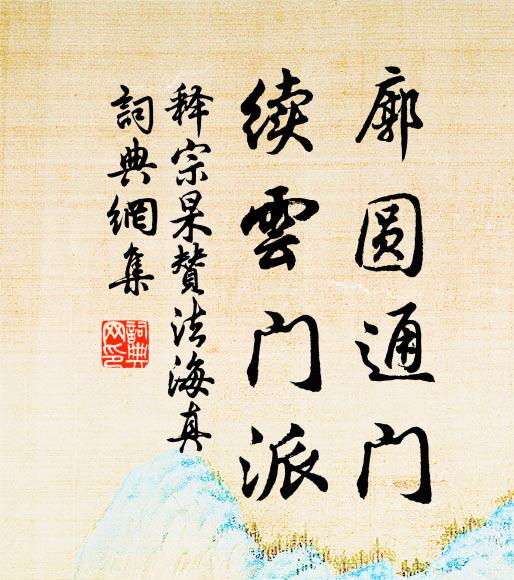 廓圆通门
续雲门派
释宗杲赞法海真
詞典網集
詞典網印